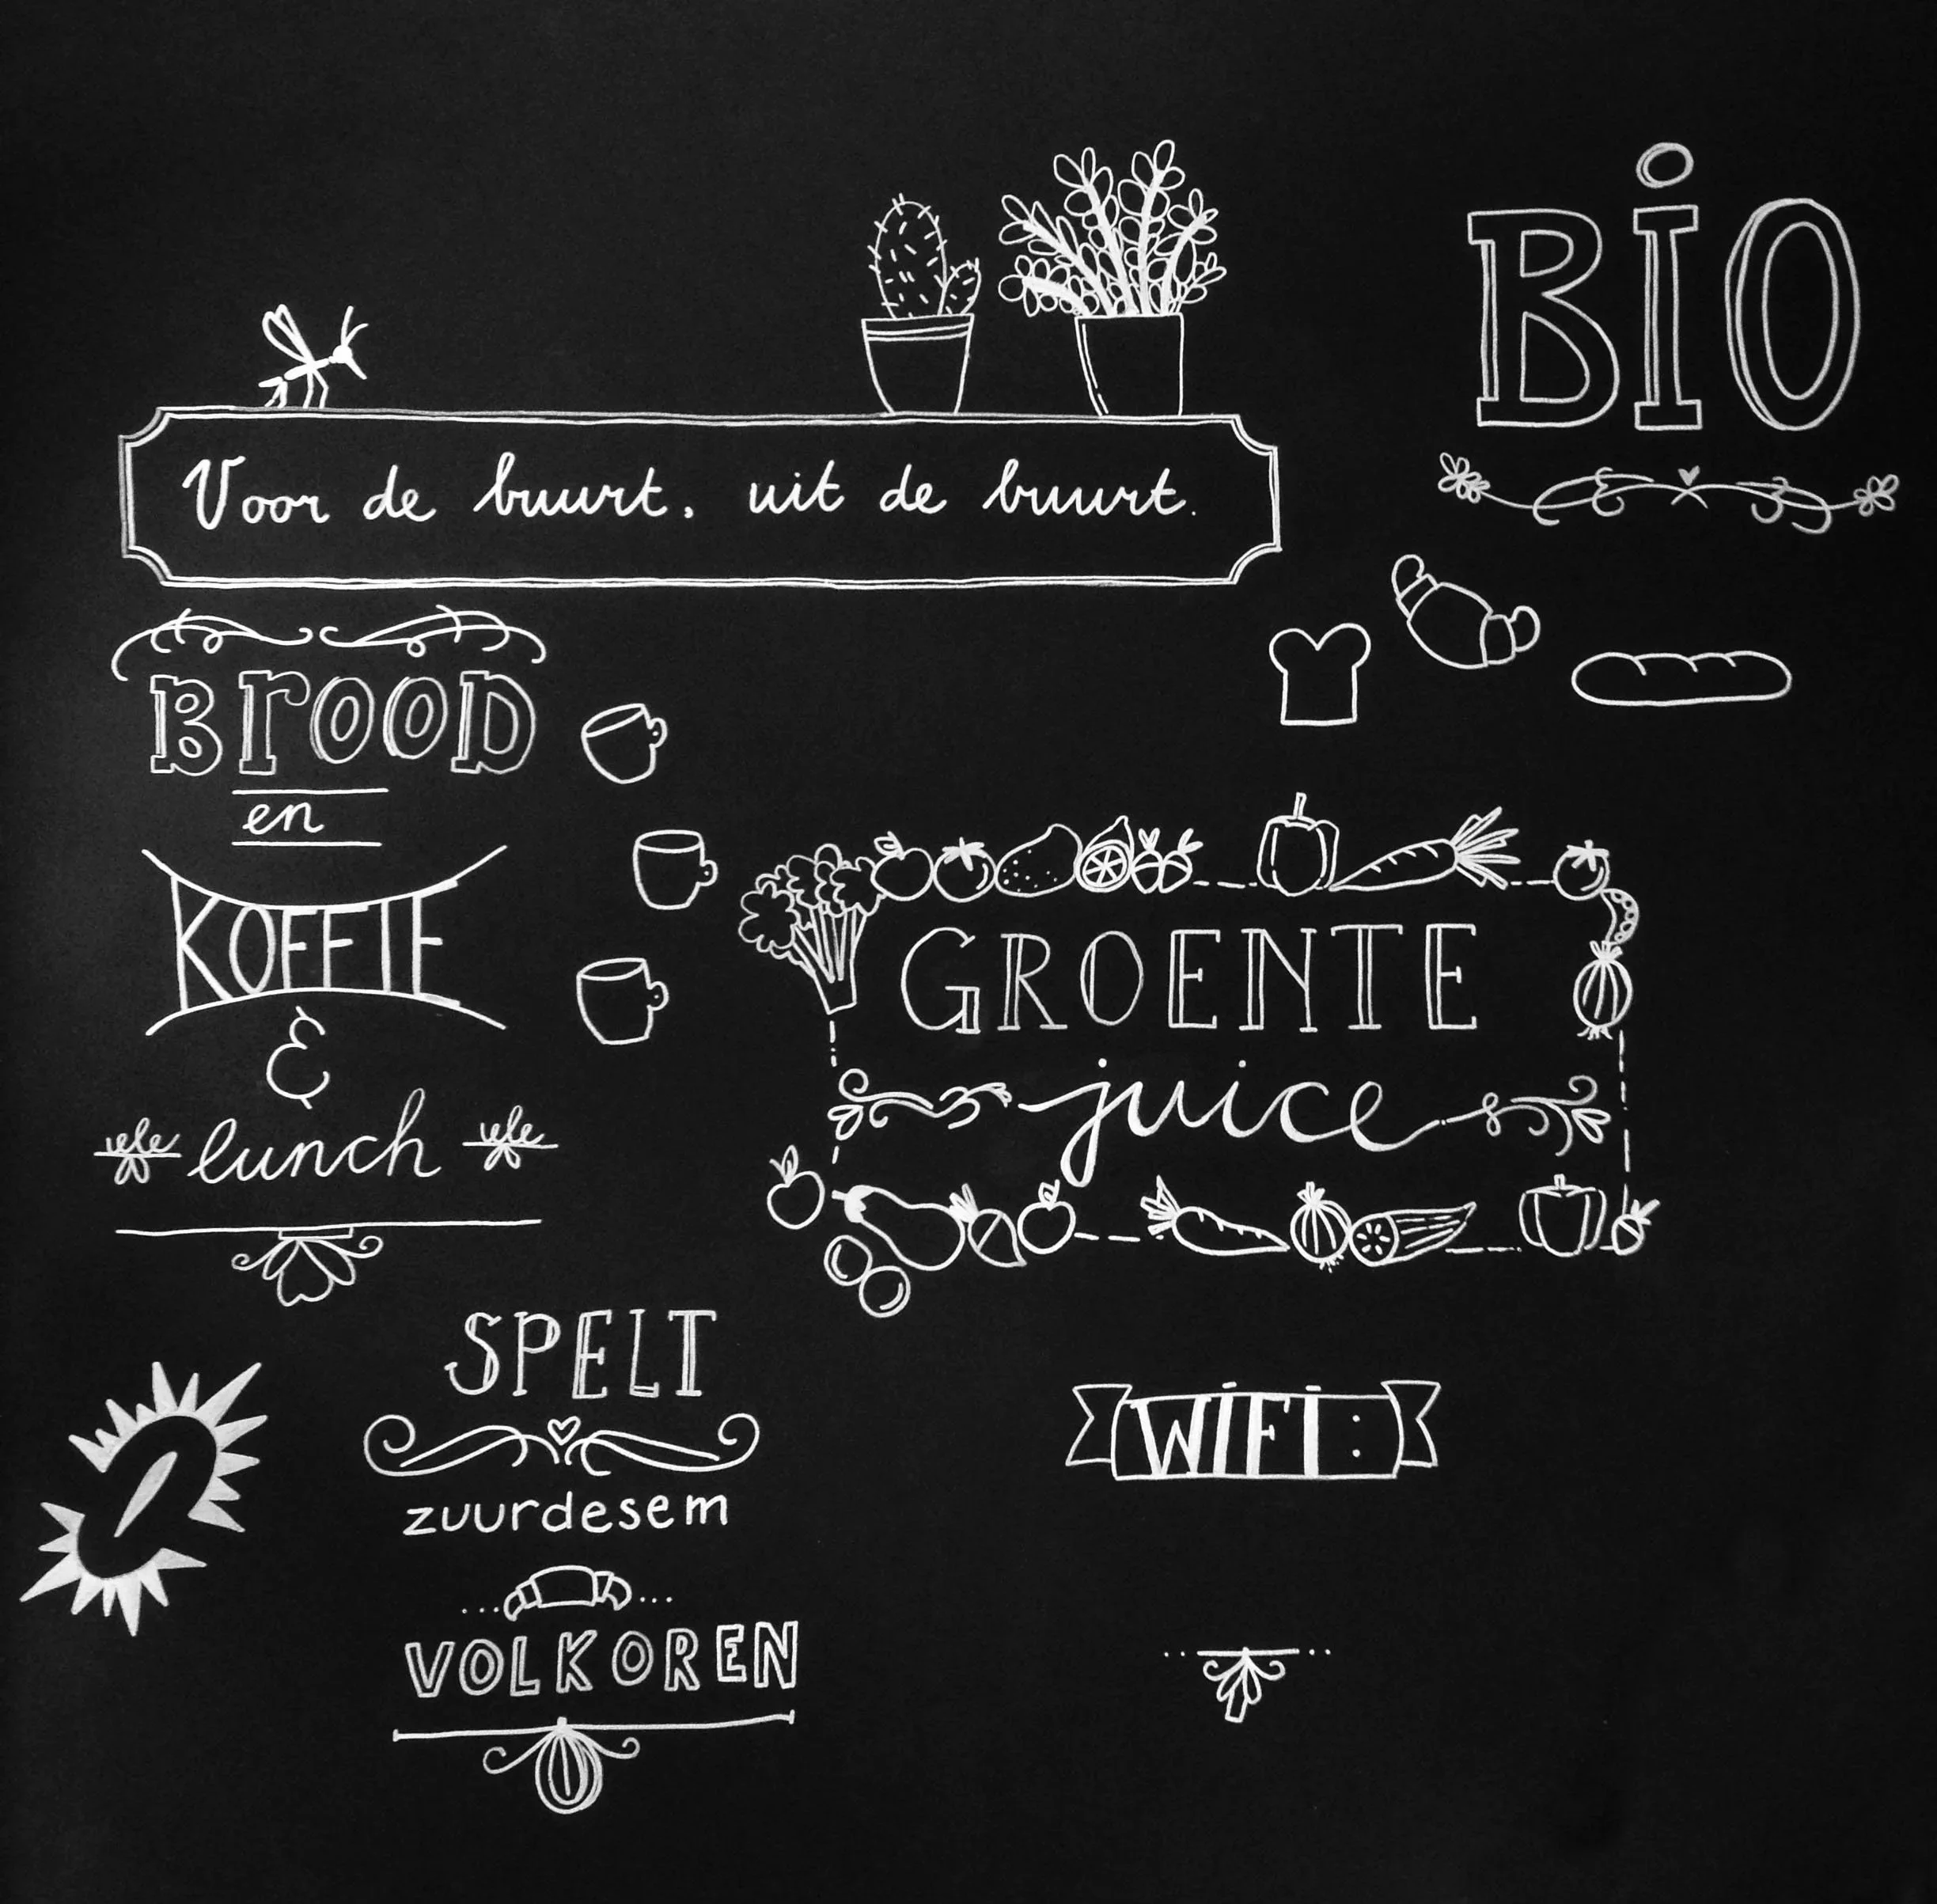 BiO
Voor de buurt, uit de buurt.
BrOOD
en
KOFFIE
&
lunch
GROENTE
juice
SPELT
zuurdesem
VOLKOREN
WIFI: